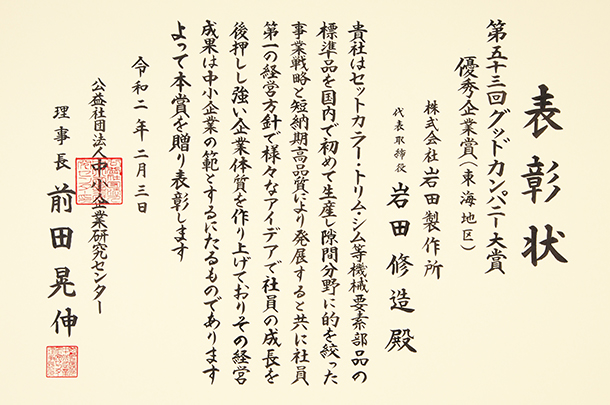 表彰状
第五十三回グッドカンパニー大賞
優秀企業賞（東海地区）
株式会社岩田製作所
代表取締役 岩田修造殿
貴社はセットカラー・トリム・シム等機械要素部品の
標準品を国内で初めて生産し隙間分野に的を絞った
事業戦略と短納期高品質により発展すると共に社員
第一の経営方針で様々なアイデアで社員の成長を
後押しし強い企業体質を作り上げておりその経営
成果は中小企業の範とするにたるものであります
よって本賞を贈り表彰します
令和二年二月三日
公益社団法人中小企業研究センター
理事長 前田晃伸